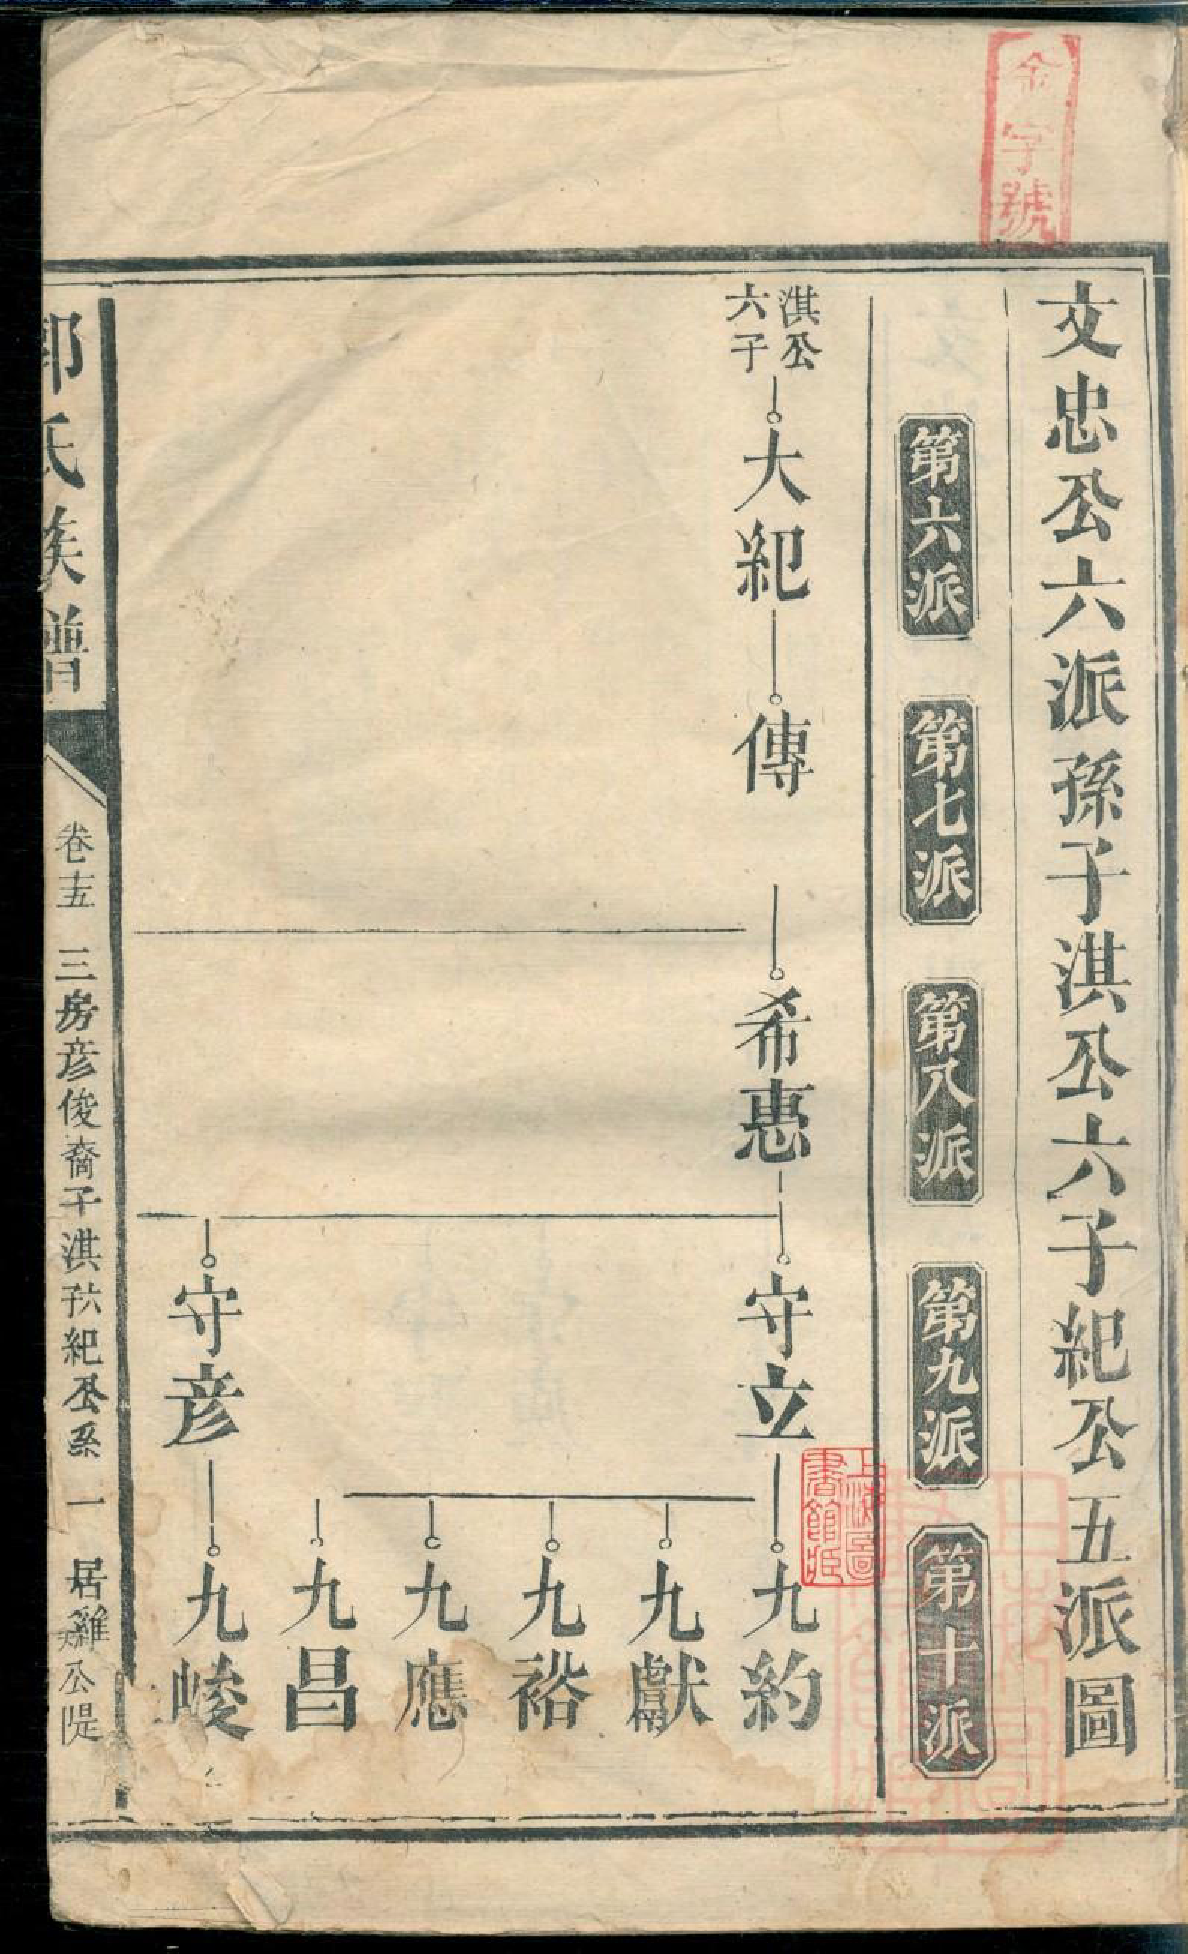 金字號
文忠公六派孫子淇公六子紀公五派圖
第六派
第七派
第八派
第九派
第十派
淇公
六子
大紀
傳
希惠
守立
守彦
九約
九獻
九裕
九應
九昌
九峻
氏族譜
卷十五
三房彦俊裔子淇子六紀公系
一
居雞
公隄
上海圖
書館藏